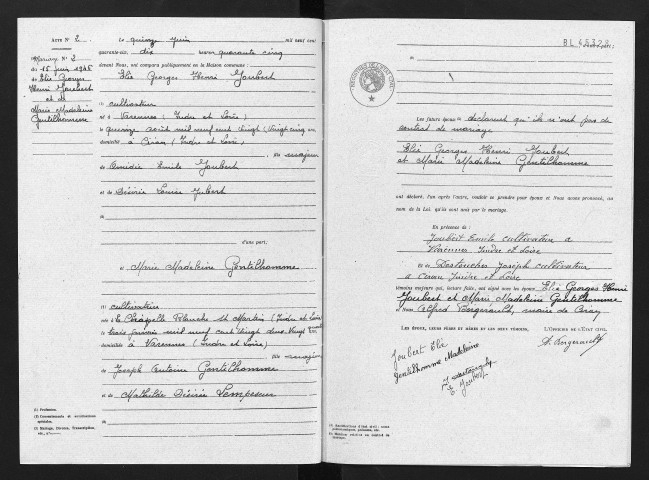 ACTE N° 2
Mariage N° 2
du 15 juin 1945
de Elie Georges
Henri Joubert
et de
Marie Madeleine
Gentilhomme
Le quinze juin mil neuf cent
quarante-cinq, dix heures quarante cinq
devant Nous, ont comparu publiquement en la Maison commune :
Elie Georges Henri Joubert
(1) cultivateur
né à Varennes (Indre et Loire)
le quinze août mil neuf cent vingt (Vingt cinq ans
domicilié à Ciran (Indre et Loire)
fils majeur
de Amédée Emile Joubert
et de Désirée Louise Jubert
d'une part,
et Marie Madeleine Gentilhomme
(1) cultivatrice
née à La Chapelle Blanche St Martin (Indre et Loire
le trois janvier mil neuf cent vingt deux Vingt
domiciliée à Varennes (Indre et Loire)
fille majeure
de Joseph Antoine Gentilhomme
et de Mathilde Désirée
(1) Profession.
(3) Divorce, Transcription,
etc.
Les futurs époux déclarent qu'ils n'ont pas de
contrat de mariage
Elie Georges Henri Joubert
et Marie Madeleine Gentilhomme
ont déclaré, l'un après l'autre, vouloir se prendre pour époux et Nous avons prononcé, au
nom de la Loi, qu'ils sont unis par le mariage.
En présence de :
Joubert Emile cultivateur à
Varennes Indre et Loire
et de Destouches Joseph cultivateur
à Ciran Indre et Loire
témoins majeurs qui, lecture faite, ont signé avec les époux Elie Georges Henri
Joubert et Marie Madeleine Gentilhomme
et Nous Alfred Borgerault, maire de Ciran
LES ÉPOUX, LEURS PÈRES ET MÈRES ET LES DEUX TÉMOINS,
L'OFFICIER DE L'ÉTAT CIVIL,
Joubert Elie
A. Borgerault
Gentilhomme Madeleine
E. Joubert